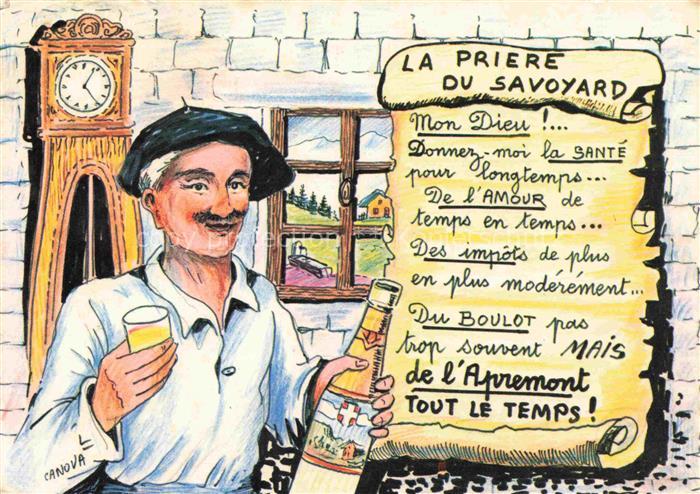 LA PRIERE
DU SAVOYARD
Mon Dieu !...
Donnez-moi la SANTÉ
pour longtemps...
De l'AMOUR de
temps en temps...
Des impôts de plus
en plus modérément...
Du BOULOT pas
trop souvent MAIS
de l'Apremont
TOUT LE TEMPS !
L
CANOVA